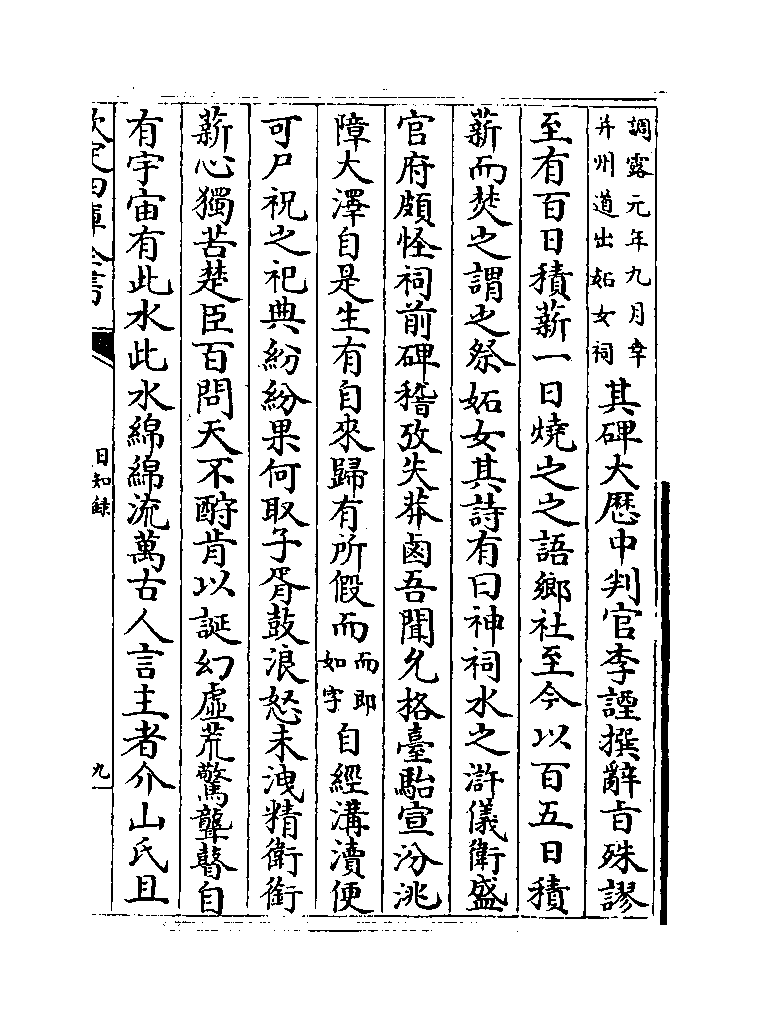 調露元年九月幸
并州道出妬女祠
其碑大厯中判官李諲撰辭旨殊謬
至有百日積薪一日燒之之語鄉社至今以百五日積
薪而焚之謂之祭妬女其詩有曰神祠水之滸儀衛盛
官府頗怪祠前碑稽攷失莽鹵吾聞允格臺駘宣汾洮
障大澤自是生有自來歸有所假而
而即
如字
自經溝瀆便
可尸祝之祀典紛紛果何取子胥鼓浪怒未洩精衛銜
薪心獨苦楚臣百問天不酧肯以誕幻虛荒驚聾瞽自
有宇宙有此水此水綿綿流萬古人言主者介山氏且
欽定四庫全書
日知錄
九